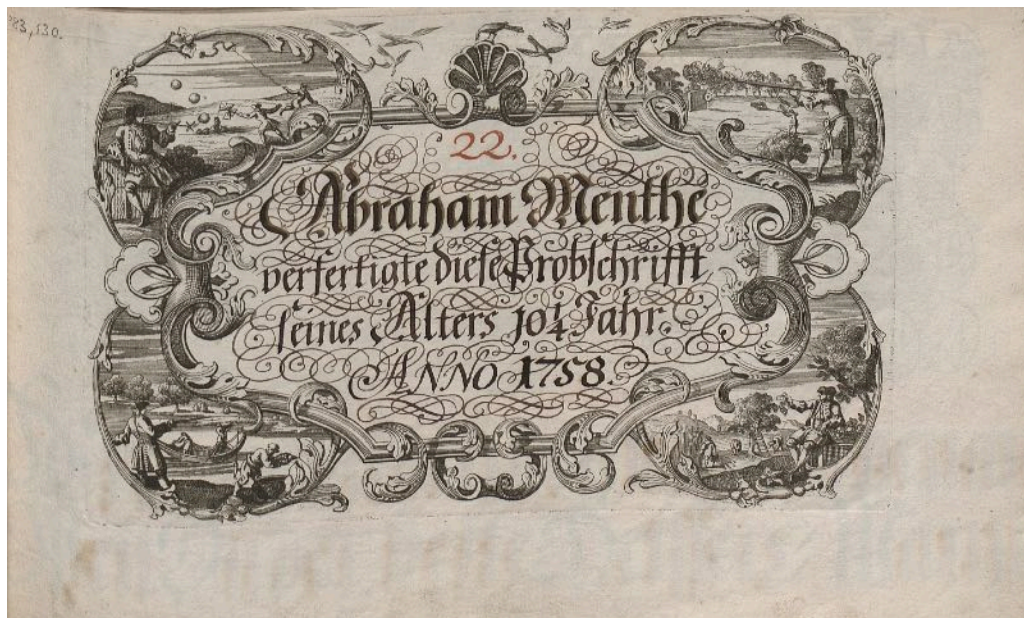 83,530.
22.
Abraham Menthe
verfertigte diese Probschrifft
seines Alters 10¼ Jahr.
ANNO 1758.